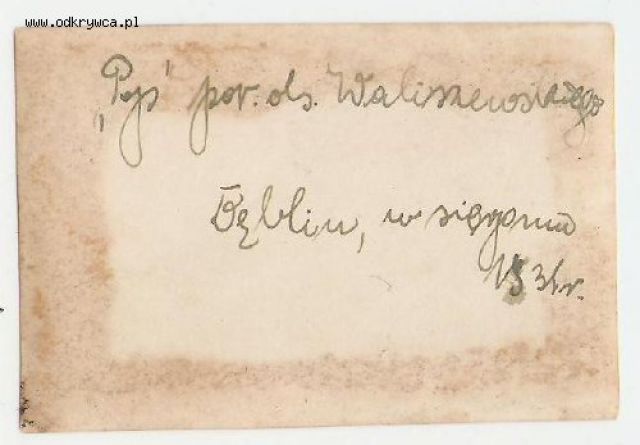 www.odkrywca.pl
por. obs. Waliszewskiego
Dęblin, w sierpniu
1931r.